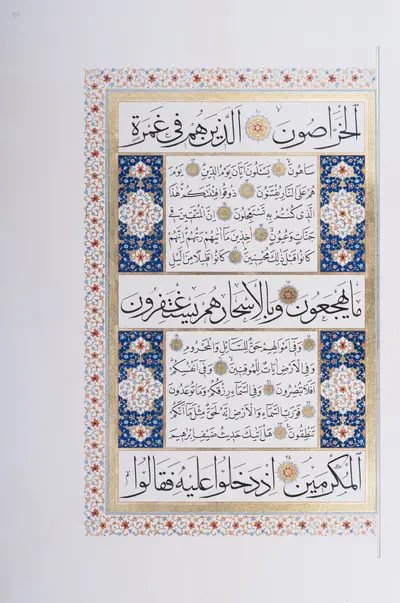 الْخَرَّاصُونَ الَّذِينَ هُمْ فِي غَمْرَةٍ
سَاهُونَ يَسْئَلُونَ أَيَّانَ يَوْمُ الدِّينِ يَوْمَ
هُمْ عَلَى النَّارِ يُفْتَنُونَ ذُوقُوا فِتْنَتَكُمْ هٰذَا
الَّذِي كُنْتُمْ بِهِ تَسْتَعْجِلُونَ إِنَّ الْمُتَّقِينَ فِي
جَنَّاتٍ وَعُيُونٍ آخِذِينَ مَا آتٰيهُمْ رَبُّهُمْ إِنَّهُمْ
كَانُوا قَبْلَ ذٰلِكَ مُحْسِنِينَ كَانُوا قَلِيلًا مِنَ اللَّيْلِ
مَا يَهْجَعُونَ وَبِالْأَسْحَارِ هُمْ يَسْتَغْفِرُونَ
وَفِي أَمْوَالِهِمْ حَقٌّ لِلسَّائِلِ وَالْمَحْرُومِ
وَفِي الْأَرْضِ آيَاتٌ لِلْمُوقِنِينَ وَفِي أَنْفُسِكُمْ
أَفَلَا تُبْصِرُونَ وَفِي السَّمَاءِ رِزْقُكُمْ وَمَا تُوعَدُونَ
فَوَرَبِّ السَّمَاءِ وَالْأَرْضِ إِنَّهُ لَحَقٌّ مِثْلَ مَا أَنَّكُمْ
تَنْطِقُونَ هَلْ أَتٰيكَ حَدِيثُ ضَيْفِ إِبْرٰهِيمَ
الْمُكْرَمِينَ إِذْ دَخَلُوا عَلَيْهِ فَقَالُوا